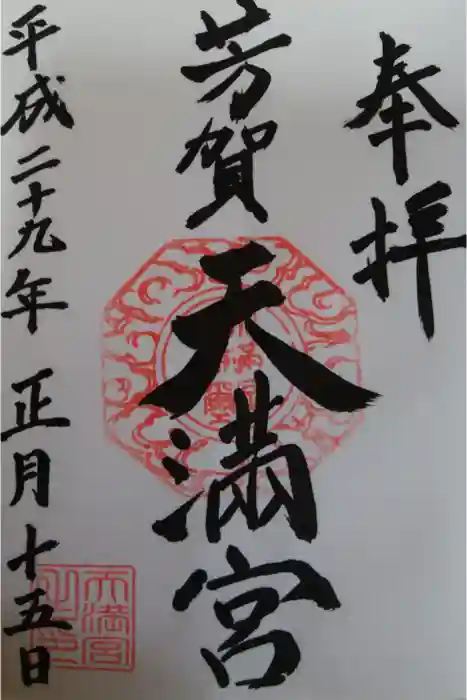 奉拝
芳賀天満宮
平成二十九年正月十五日
天満宮